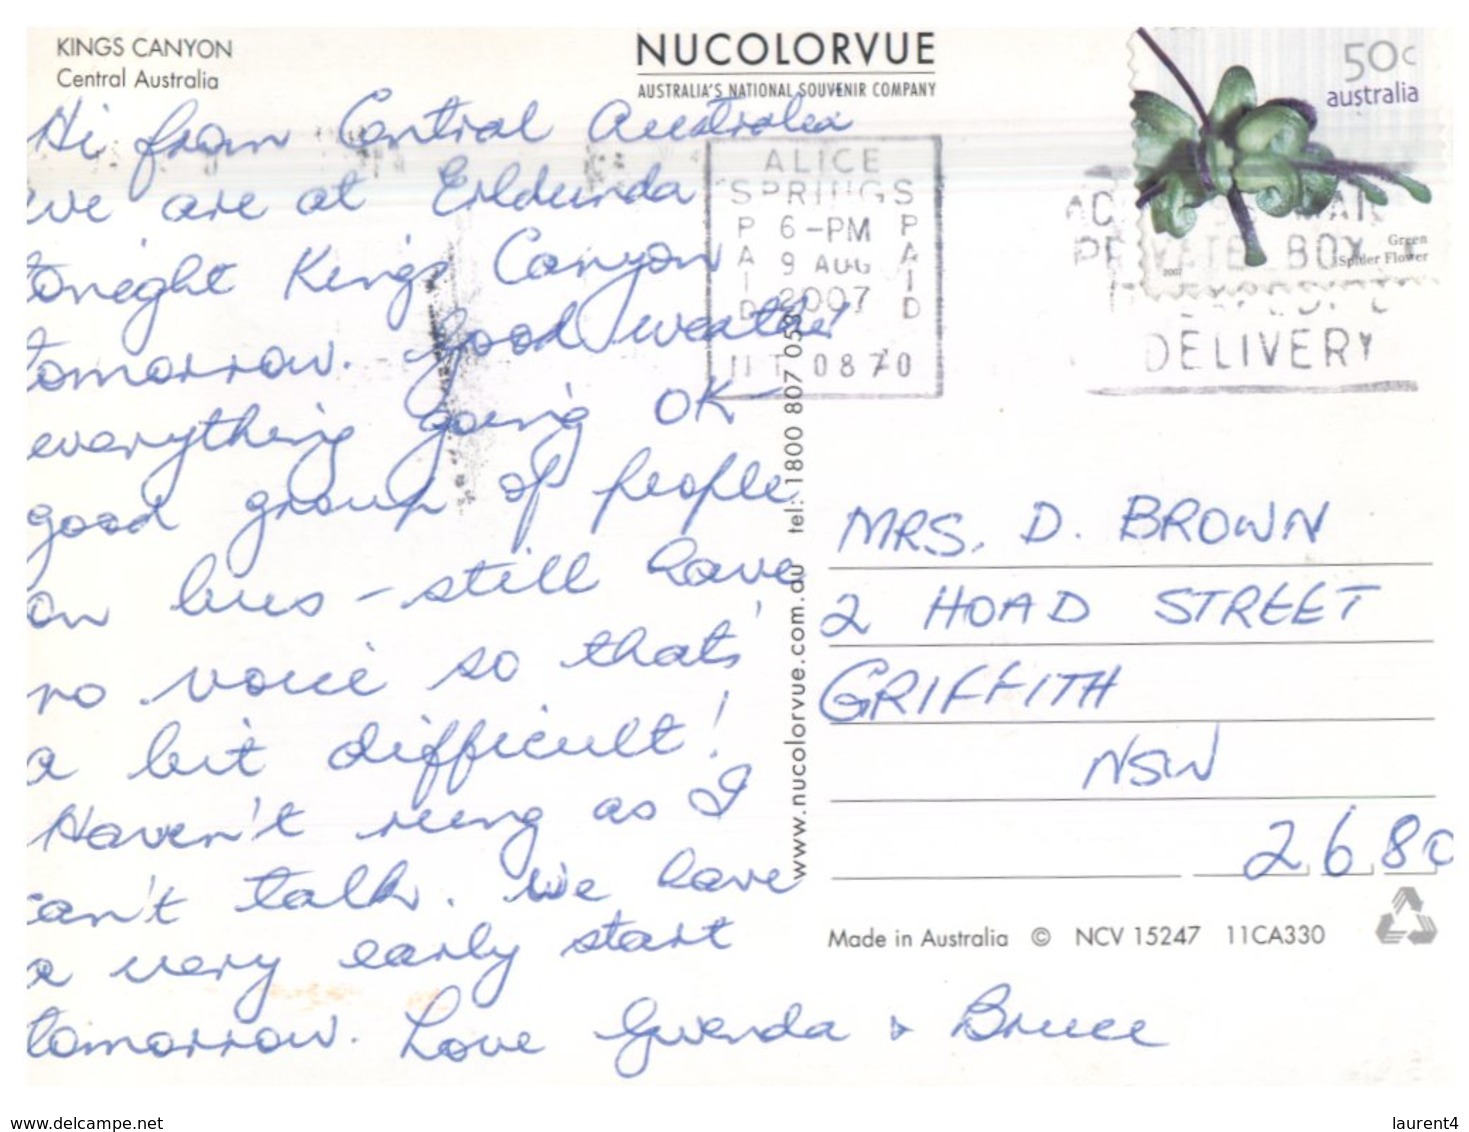 KINGS CANYON
Central Australia
NUCOLORVUE
AUSTRALIA'S NATIONAL SOUVENIR COMPANY
50c
australia
Green
Spider Flower
2007
ALICE
SPRINGS
PAID
6-PM
9 AUG
2007
PAID
NT 0870
PRIVATE BOX
DELIVERY
Hi from Central Australia
we are at Erldunda
tonight Kings Canyon
tomorrow. Good weather
everything going OK -
good group of people
on bus - still have
no voice so that's
a bit difficult!
Haven't rung as I
can't talk. We have
a very early start
tomorrow. Love Gwenda & Bruce
www.nucolorvue.com.au tel: 1800 807 053
MRS. D. BROWN
2 HOAD STREET
GRIFFITH
NSW
2680
Made in Australia © NCV 15247 11CA330
www.delcampe.net
laurent4